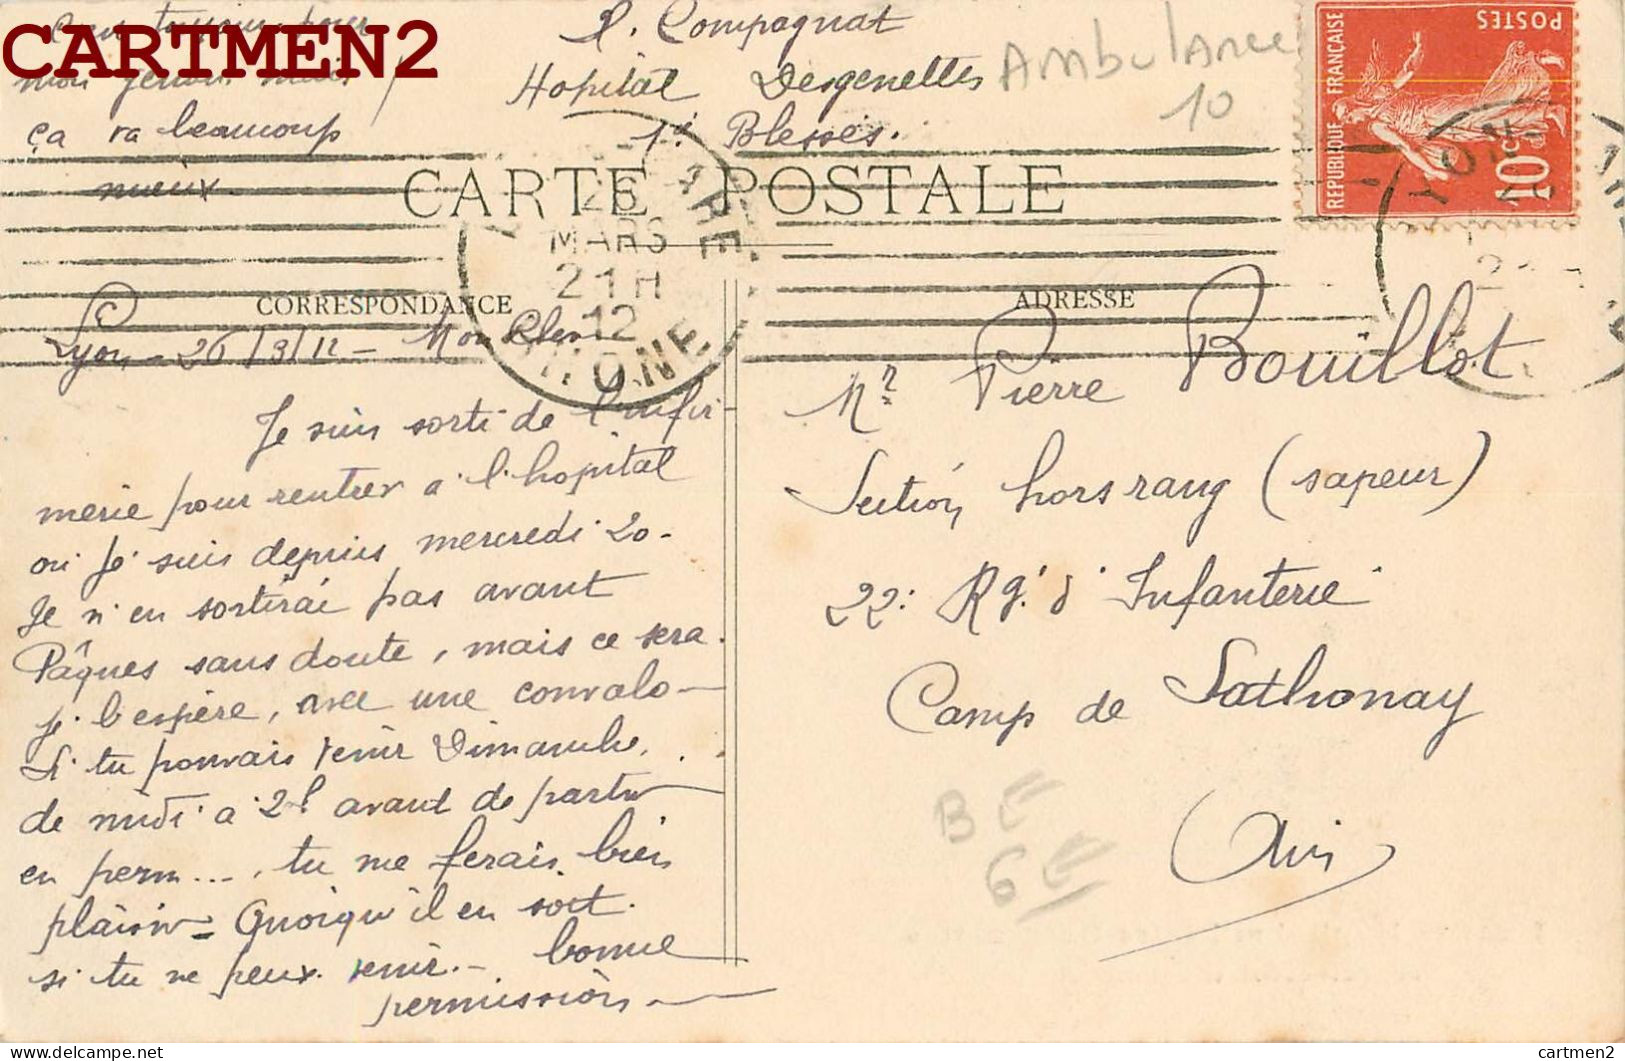 CARTMEN2
C'est toujours pour
mon genou mais
ça va beaucoup
mieux.
P. Compagnat
Hopital Desgenettes
1ers Blessés.
Ambulance
10
RÉPUBLIQUE FRANÇAISE
POSTES
10c
CARTE POSTALE
26
MARS
21H
12
RHONE
CORRESPONDANCE
ADRESSE
Lyon - 26/3/12 - Mon cher
Je suis sorti de l'infir-
merie pour rentrer à l'hopital
où je suis depuis mercredi 20.
Je n'en sortirai pas avant
Pâques sans doute, mais ce sera
j'espère, avec une convalo-
Si tu pouvais venir Dimanche,
de midi à 2h avant de partir
en perm..., tu me ferais bien
plaisir = Quoiqu'il en soit.
si tu ne peux venir - bonne
permission
Mr Pierre Bouillot
Section hors rang (sapeur)
22e Rg. d'Infanterie
Camp de Sathonay
Ain
B E
6 E
delcampe.net
cartmen2